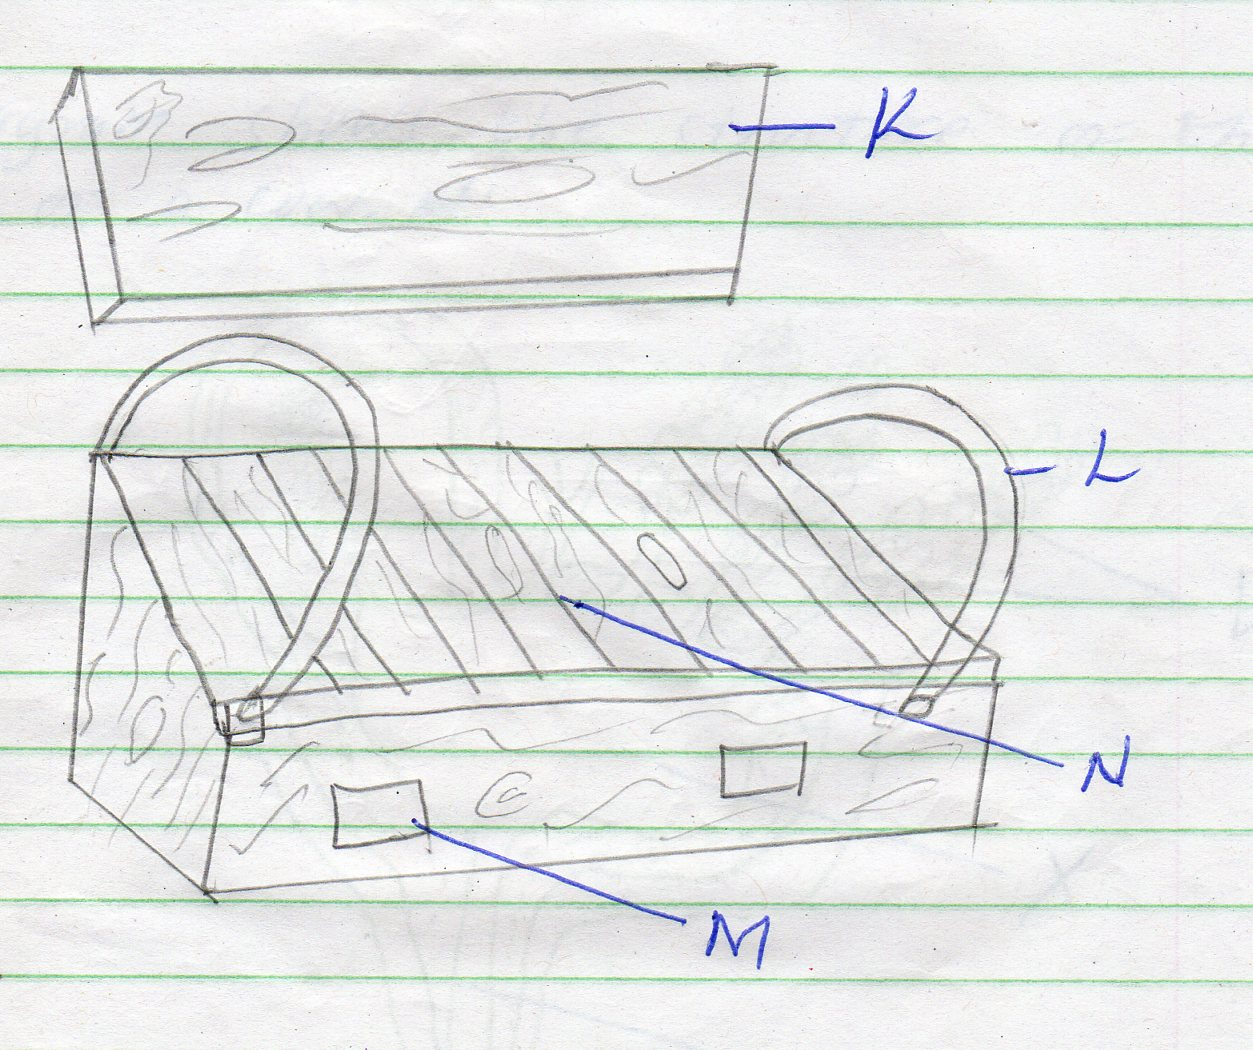 K
L
N
M